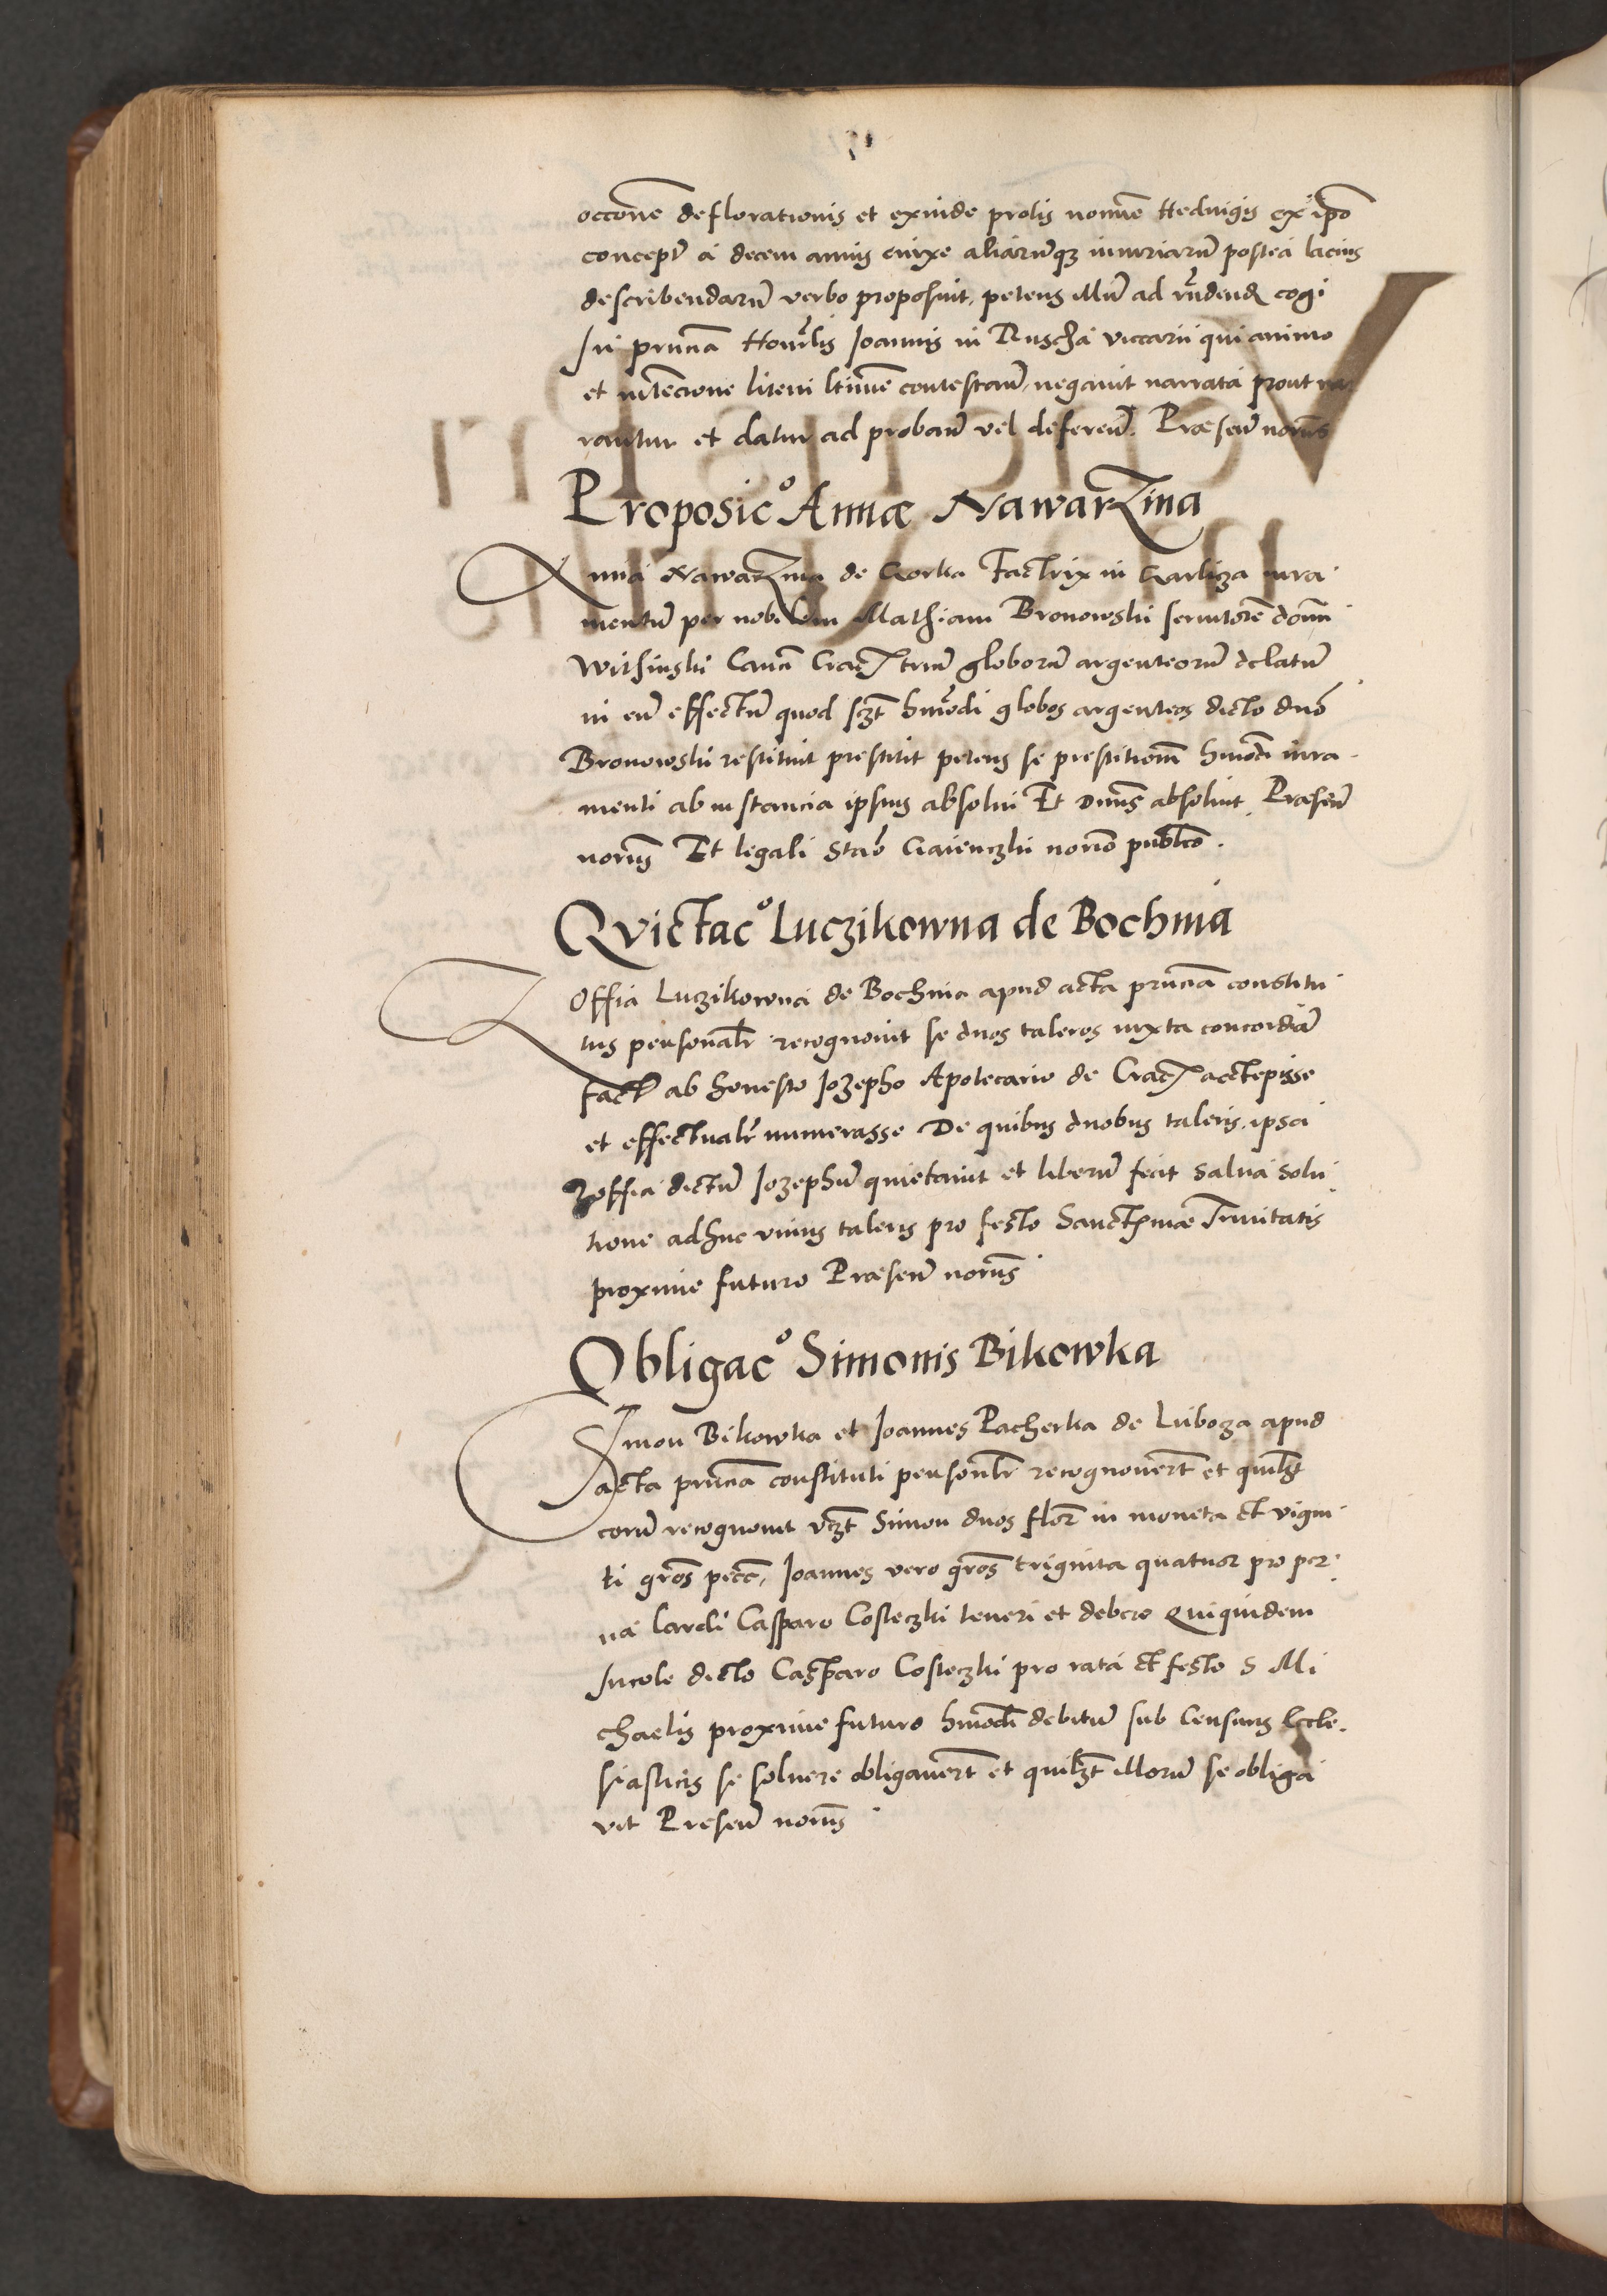 occone deflorationis et exinde prolis nomine Hedvigis ex ipo
concept a decem annis enixe aliarumq iniuriarum postea lacius
describendarum verbo proposuit, petens illum ad rndend cogi
In prncia Honrlis Joannis in Ruscha viccarii qui animo
et intencione litem ltime contestan, negavit narrata prout nar
rantur et datur ad proband vel deferend. Præsen norus
Proposico Annæ Nawarzina
Anna Nawarzina de Gorka Factrix in Garliza iura
mentum per nobilem Mathiam Bronowski servitorem domini
Wilsinski Canci Crac trium globorum argenteorum delatum
in eum effectum quod szt hmodi globos argenteos dicto dno
Bronowski restituit prestitit petens se prestitionem hmodi iura
menti ab instancia ipsius absolvi Et Dnus absolvit. Præsen
norus Et legali Stao Gaienczki norio publco.
Qvictaco Luczikowna de Bochnia
Zoffia Luczikowna de Bochnia apud acta prncia constitu
tus personalr recognovit se duos taleros iuxta concordiam
fact ab honesto Jozepho Apotecario de Crac acctepisse
et effectualr numerasse De quibus duobus taleris ipsa
Zoffia dictum Jozephum quietavit et liberum fecit salva solu
tione adhuc unius taleris pro festo Sanctmæ Trinitatis
proxime futuro Præsen norus
Obligaco Simonis Bikowka
Simon Bikowka et Joannes Pacherka de Luboza apud
acta prncia constituti personlr recognovert et quilbt
eorum recognovit vzt Simon duos flor in moneta et vigin
ti gros pecc, Joannes vero gros triginta quatuor pro per
na lardi Casparo Costeczki teneri et debere Quiquidem
Incole dicto Casparo Costeczki pro rata et festo S Mi
chaelis proxime futuro hmodi debitum sub Censuris Eccle
siasticis se solvere obligavert et quilbt illorum se obliga
vit Præsen norus